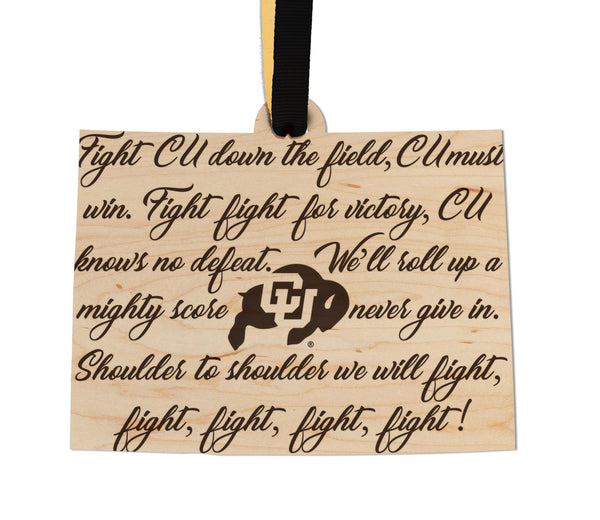 Fight CU down the field, CU must
win. Fight fight for victory, CU
knows no defeat. We'll roll up a
mighty score CU never give in.
®
Shoulder to shoulder we will fight,
fight, fight, fight, fight!